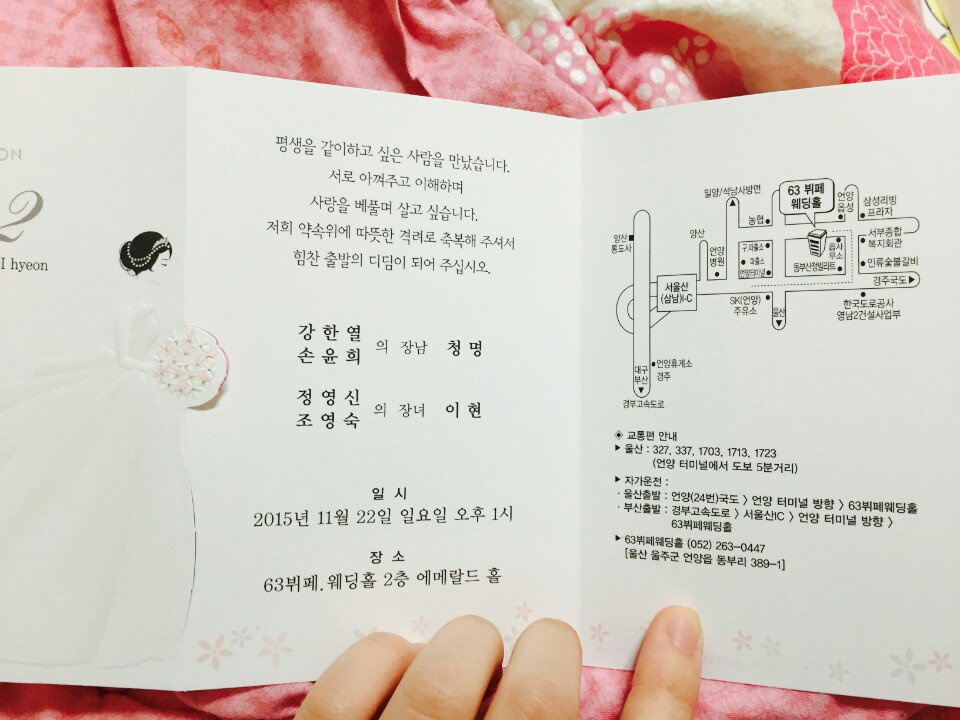 ON
2
I hyeon
평생을 같이하고 싶은 사람을 만났습니다.
서로 아껴주고 이해하며
사랑을 베풀며 살고 싶습니다.
저희 약속위에 따뜻한 격려로 축복해 주셔서
힘찬 출발의 디딤이 되어 주십시오.
강한열
손윤희
의 장남 청명
정영신
조영숙
의 장녀 이현
일 시
2015년 11월 22일 일요일 오후 1시
장 소
63뷔페.웨딩홀 2층 에메랄드 홀
밀양/석남사방면
63 뷔페
웨딩홀
언양
읍성
삼성리빙
프라자
농협
양산
통도사
양산
언양
병원
구.파출소
파출소
언양터미널
읍사
무소
동부산정빌라트
서부종합
복지회관
인류숯불갈비
경주국도
서울산
(삼남)I·C
SK(언양)
주유소
울산
한국도로공사
영남2건설사업부
대구
부산
언양휴게소
경주
경부고속도로
◈ 교통편 안내
▶ 울산 : 327, 337, 1703, 1713, 1723
(언양 터미널에서 도보 5분거리)
▶ 자가운전 :
· 울산출발 : 언양(24번)국도 > 언양 터미널 방향 > 63뷔페웨딩홀
· 부산출발 : 경부고속도로 > 서울산IC > 언양 터미널 방향 >
63뷔페웨딩홀
▶ 63뷔페웨딩홀 (052) 263-0447
[울산 울주군 언양읍 동부리 389-1]